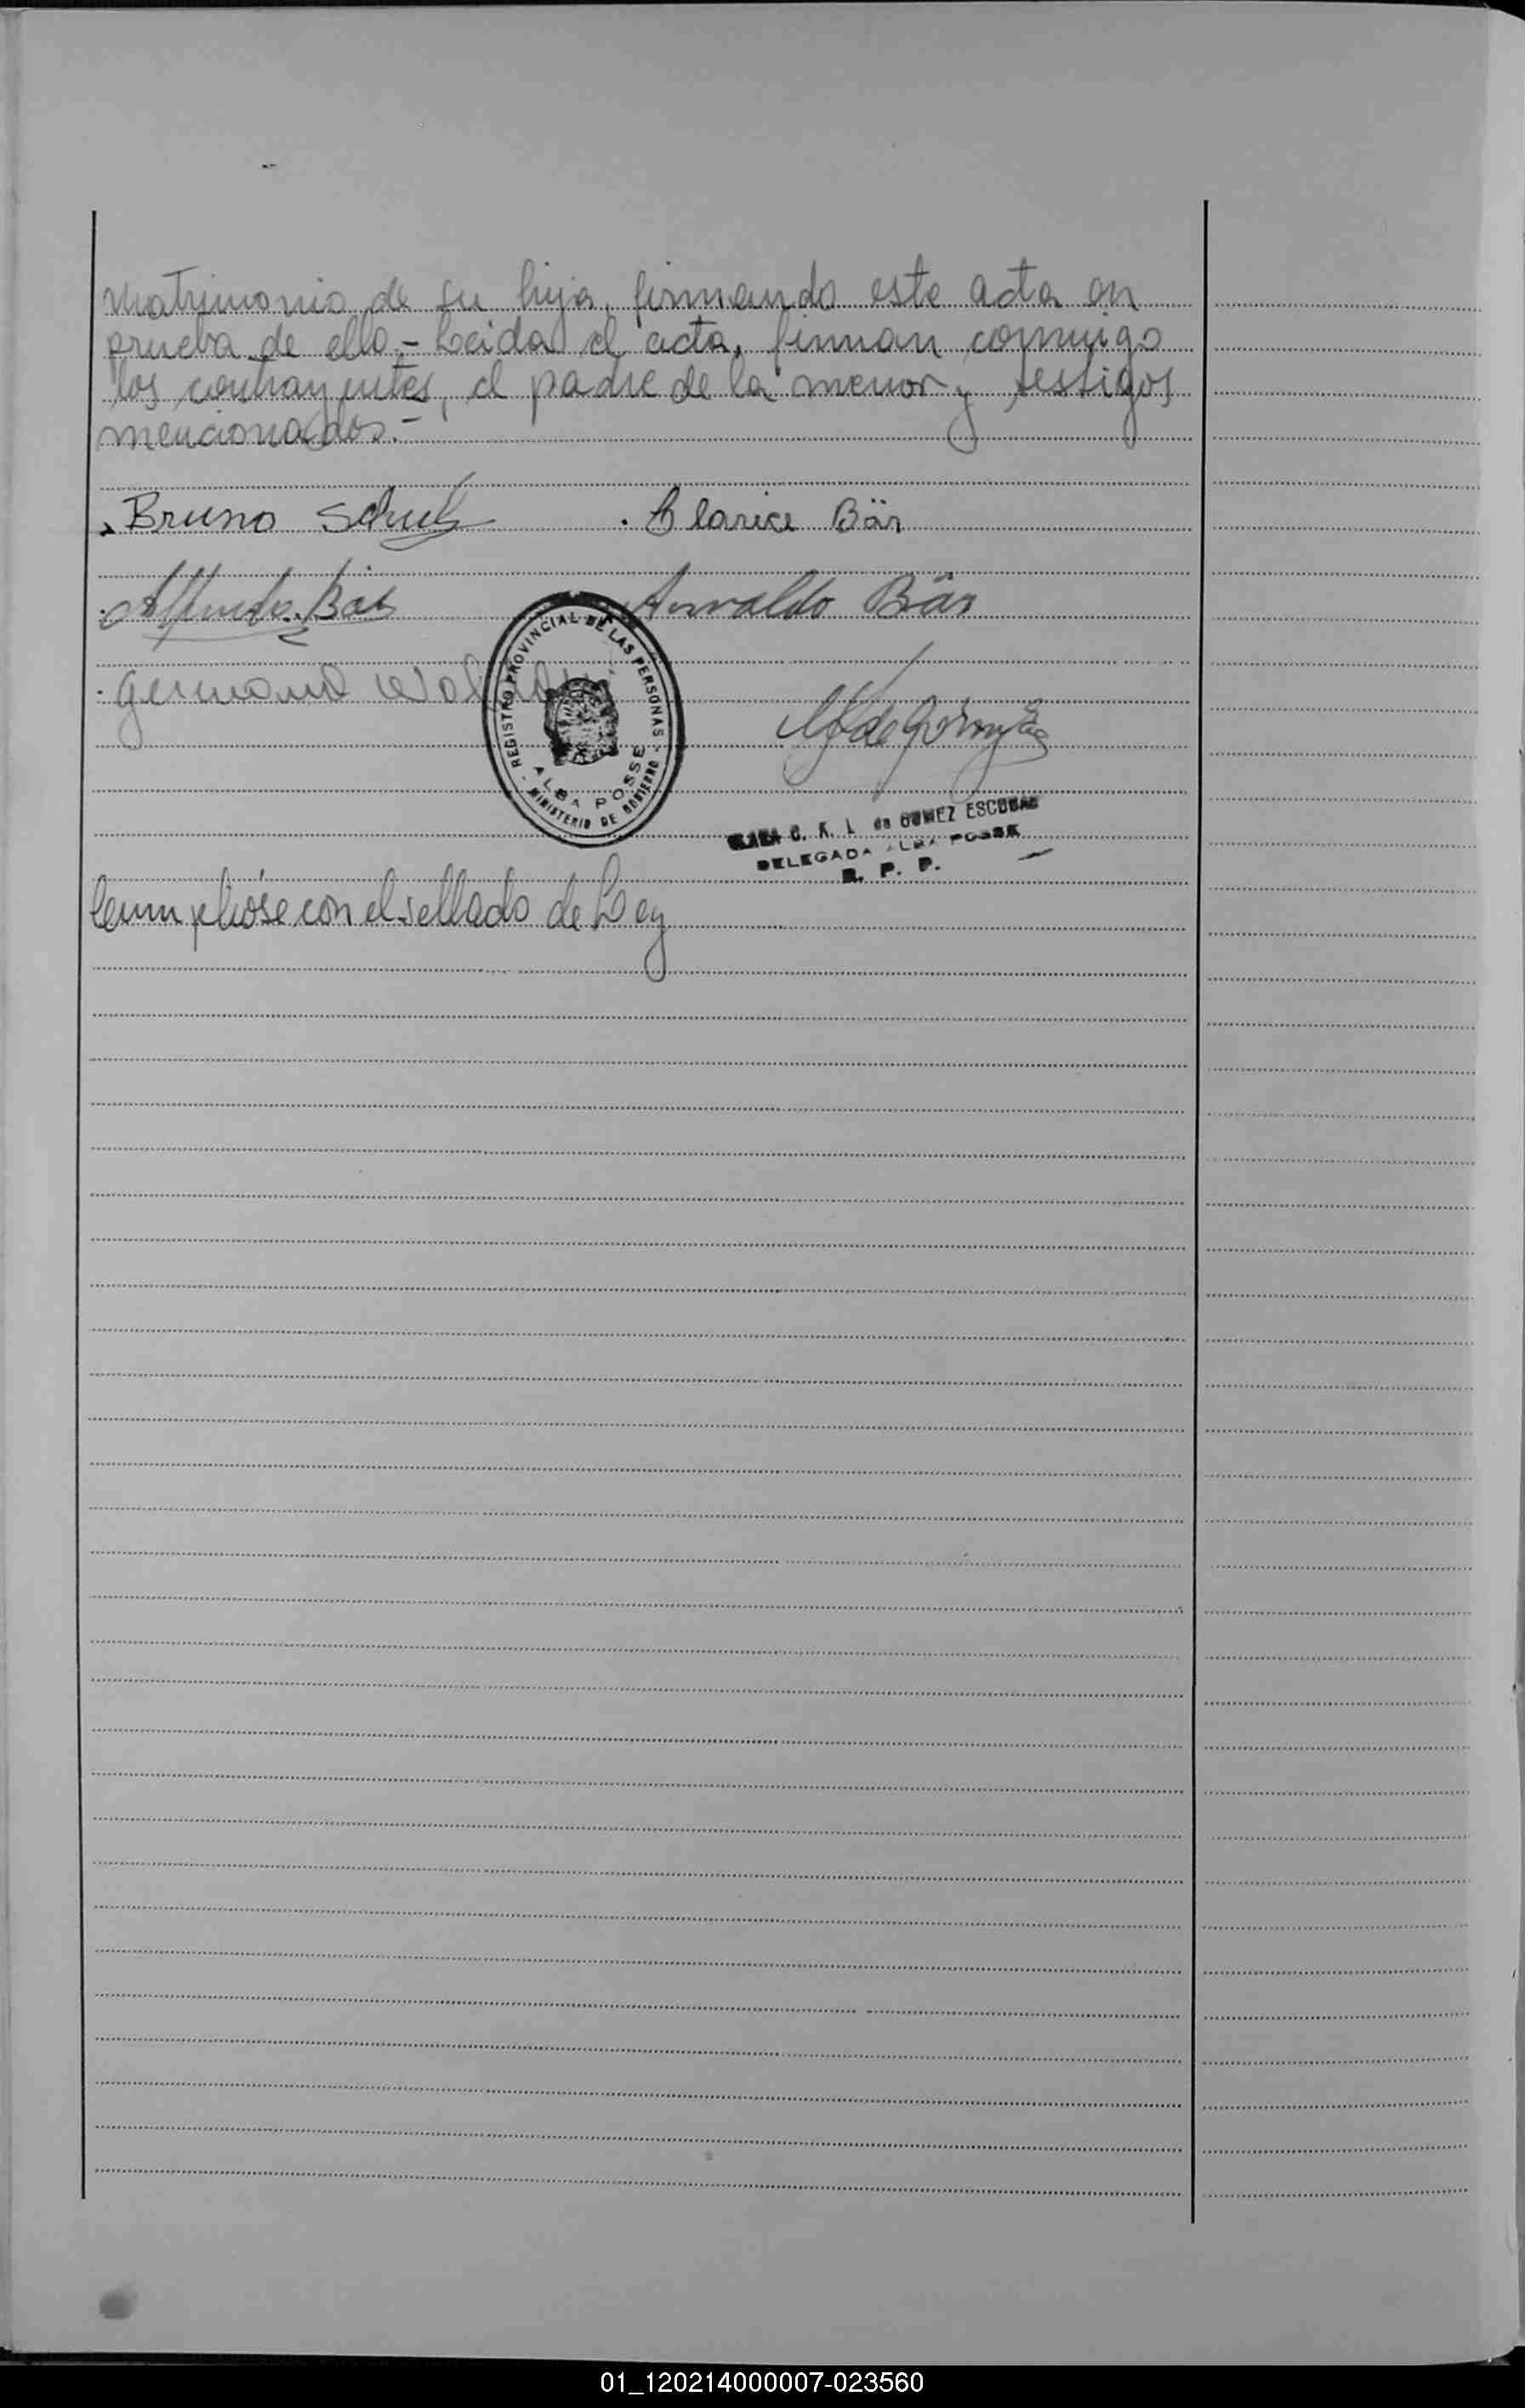 matrimonio de su hija, firmando este acta en
prueba de ello.- Leida el acta, firman conmigo
los contrayentes, el padre de la menor y testigos
mencionados.-
Bruno Schulz
Clarice Bär
Alfredo Bär
Arnaldo Bär
REGISTRO PROVINCIAL DE LAS PERSONAS
ALBA POSSE
MINISTERIO DE GOBIERNO
Germano
C. K. L. de GOMEZ ESCOBAR
DELEGADA ALBA POSSE
R. P. P.
Cumplióse con el sellado de Ley
01_120214000007-023560